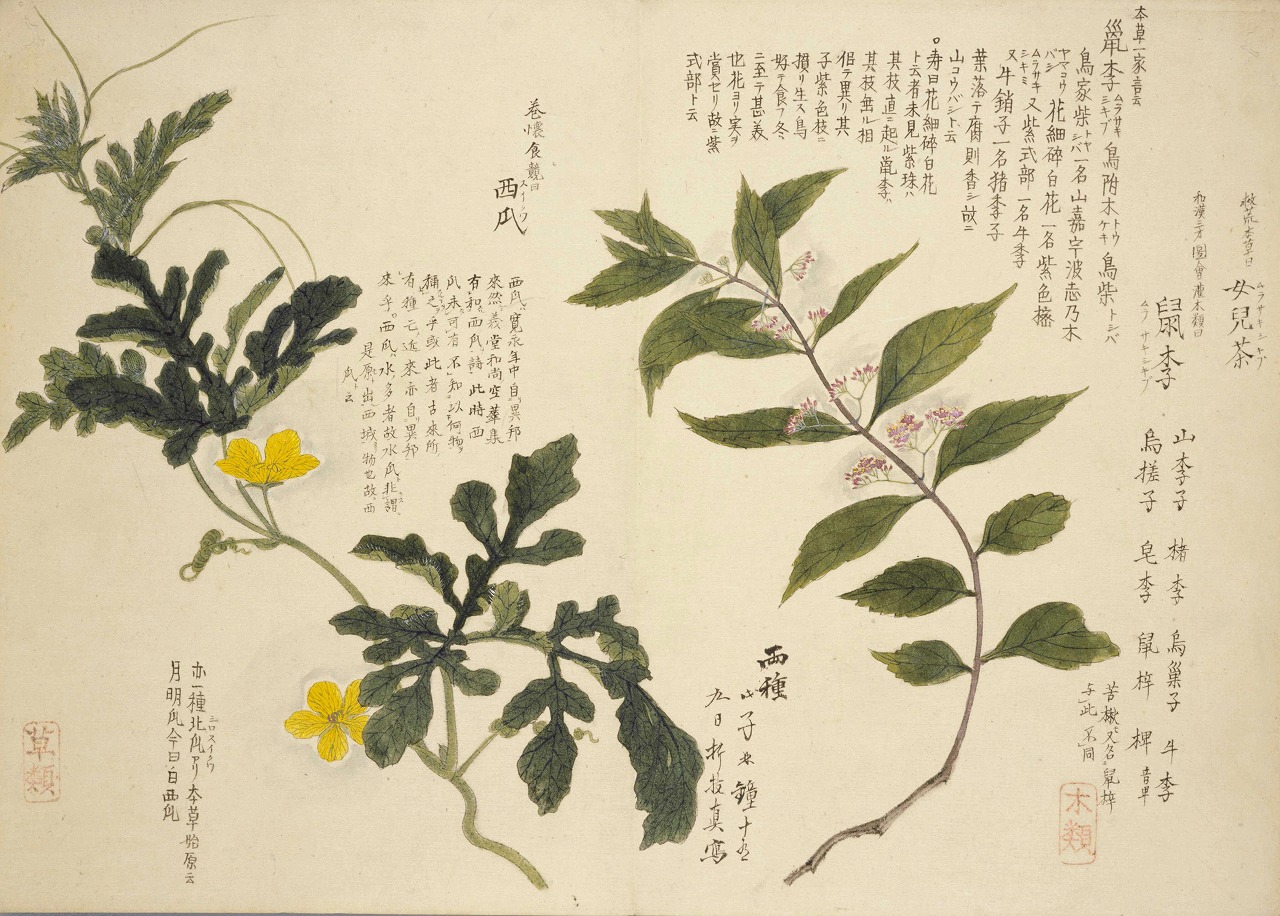 救荒本草曰
女兒茶
ムラサキシキブ
和漢三才圖會灌木類曰
鼠李
ムラサキシキブ
山李子 楮李 烏巣子 牛李
烏搓子 皂李 鼠梓 椑 音卑
苦楸又名鼠梓
与此不同
木類
本草一家言云
鼠李 ムラサキシキブ 烏附木 トウケキ 烏柴 トシバ
烏家柴 トヤシバ 一名山嘉宇波志乃木
ヤマコウバシ 花細碎白花一名紫色㯽
ムラサキシキミ 又紫式部 一名牛李
又牛銷子一名猪李子
葉落テ腐則香シ故ニ
山コウバシト云
壽曰花細碎白花
ト云者未見紫珠ハ
其枝直ニ起ル鼠李ハ
其枝無ル相
侣テ異リ其
子紫色枝ニ
損リ生ス鳥
好テ食フ冬
ニ至テ甚美
也花ヨリ実ヲ
賞セリ故ニ紫
式部ト云
両種
戊子
九日折枝真寫
巻懐食鏡曰
西瓜
スイクワ
西瓜寛永年中自異邦
來然義堂和尚空華集
有和西瓜詩此時西
瓜未可有不知以何物
稱之乎或此者古來所
有種乞近來亦自異邦
來乎。西瓜水多者故水瓜非謂
是原出西域物也故西
瓜ト云
亦一種北瓜アリ本草始原云
シロスイクワ
月明瓜今曰白西瓜
草類